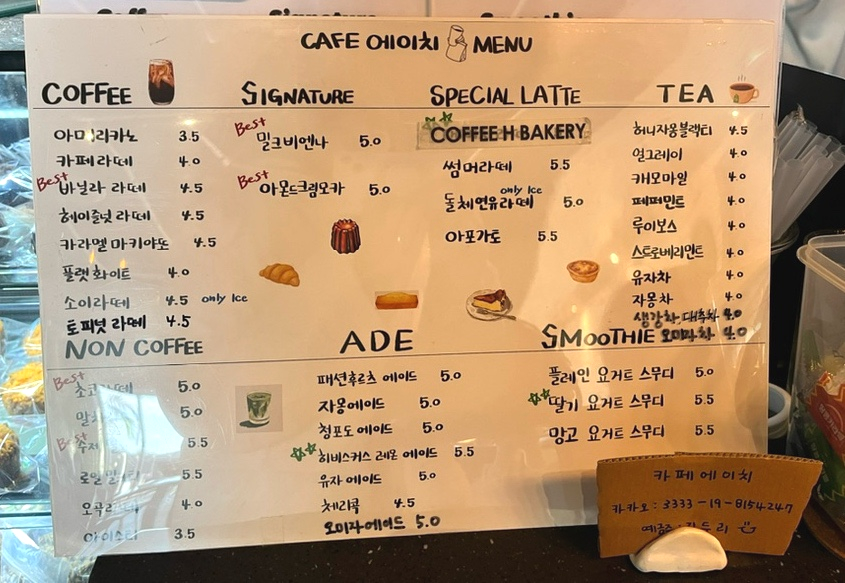 CAFE 에이치 MENU
COFFEE
아메리카노 3.5
카페라떼 4.0
Best 바닐라 라떼 4.5
헤이즐넛 라떼 4.5
카라멜 마키야또 4.5
플랫화이트 4.0
소이라떼 4.5 only Ice
토피넛 라떼 4.5
SIGNATURE
Best 밀크비엔나 5.0
Best 아몬드크림모카 5.0
SPECIAL LATTE
COFFEE H BAKERY
썸머라떼 5.5
only Ice
돌체연유라떼 5.0
아포가토 5.5
TEA
허니자몽블랙티 4.5
얼그레이 4.0
캐모마일 4.0
페퍼민트 4.0
루이보스 4.0
스트로베리민트 4.0
유자차 4.0
자몽차 4.0
생강차.대추차 4.0
오미자차 4.0
NON COFFEE
Best 초코라떼 5.0
5.0
Best 5.5
5.5
4.0
3.5
ADE
패션후르츠 에이드 5.0
자몽에이드 5.0
청포도에이드 5.0
히비스커스 레몬 에이드 5.5
유자 에이드 5.0
체리콕 4.5
오미자에이드 5.0
SMOOTHIE
플레인 요거트 스무디 5.0
딸기 요거트 스무디 5.5
망고 요거트 스무디 5.5
카페에이치
카카오 : 3333-19-8154247
예금주 :